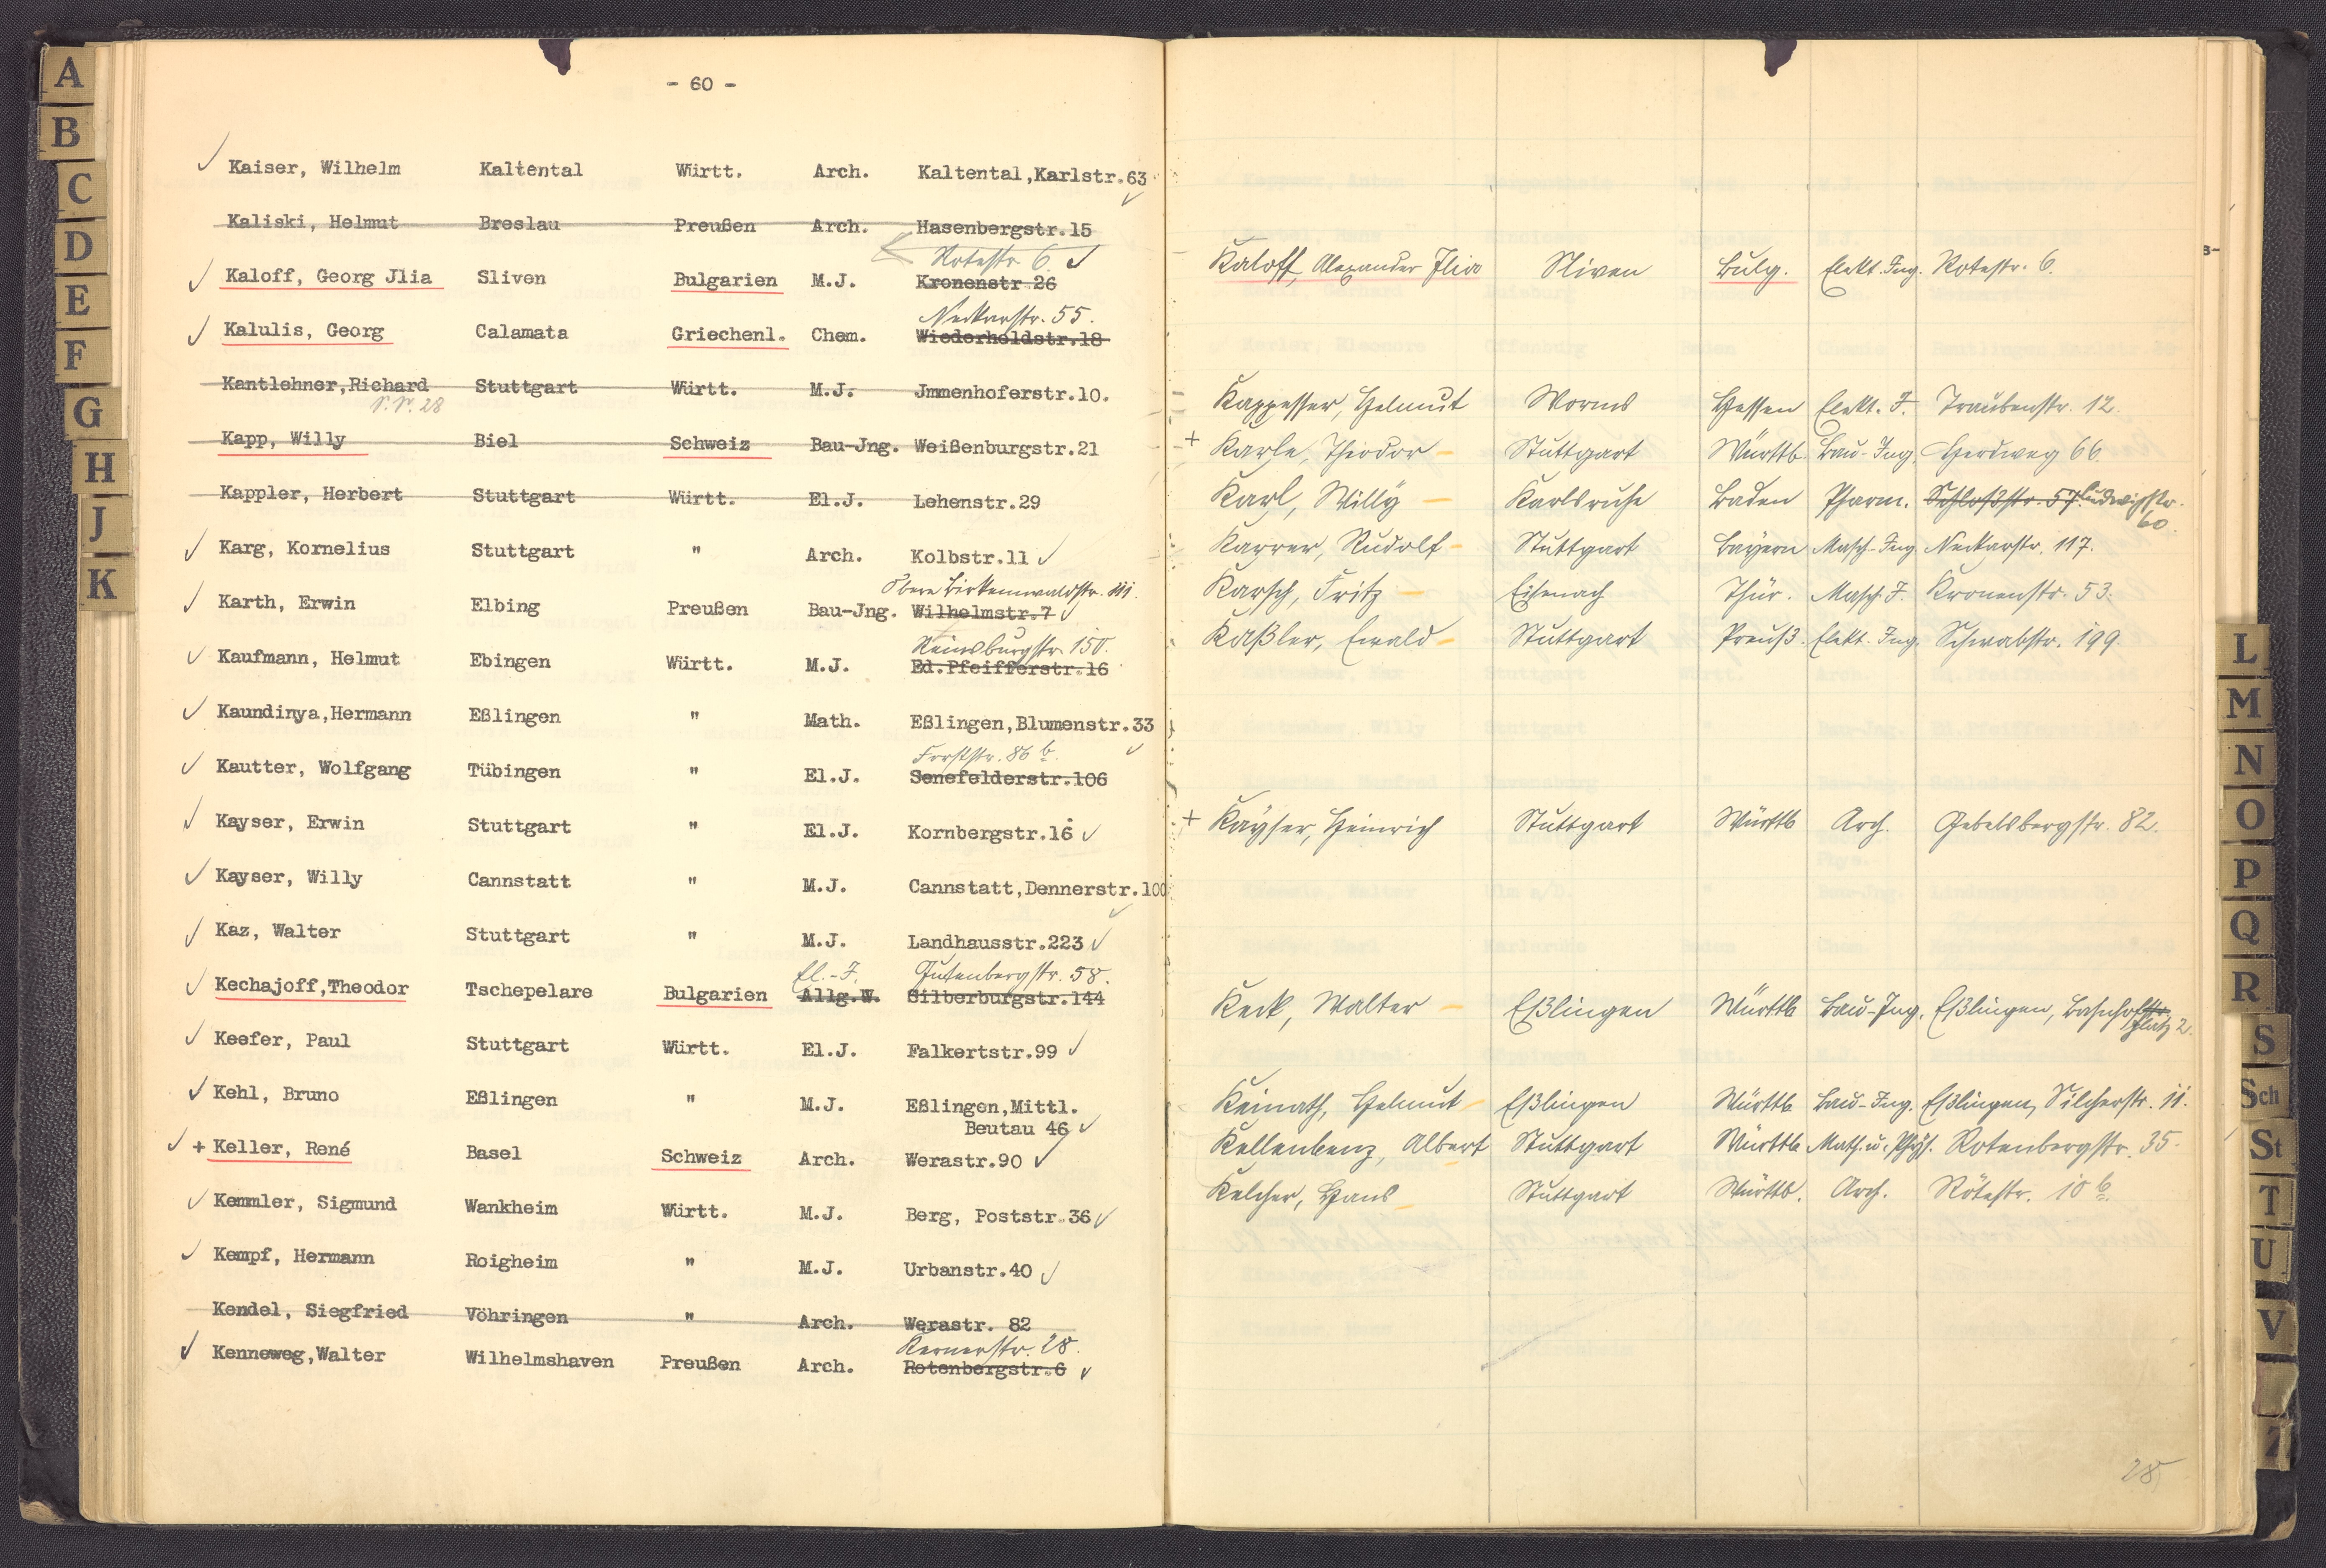 - 60 -
Kaiser, Wilhelm Kaltental Württ. Arch. Kaltental,Karlstr.63
Kaliski, Helmut Breslau Preußen Arch. Hasenbergstr.15
Rotestr. 6.
Kaloff, Georg Jlia Sliven Bulgarien M.J. Kronenstr 26
Neckarstr. 55.
Kalulis, Georg Calamata Griechenl. Chem. Wiederholdstr.18
Kantlehner,Richard Stuttgart Württ. M.J. Jmmenhoferstr.10.
Kapp, Willy Biel Schweiz Bau-Jng. Weißenburgstr.21
Kappler, Herbert Stuttgart Württ. El.J. Lehenstr.29
Karg, Kornelius Stuttgart " Arch. Kolbstr.11
Obere Birkenwaldstr.
Karth, Erwin Elbing Preußen Bau-Jng. Wilhelmstr.7
Reinsburgstr. 150.
Kaufmann, Helmut Ebingen Württ. M.J. Ed.Pfeifferstr.16
Kaundinya,Hermann Eßlingen " Math. Eßlingen,Blumenstr.33
Forststr. 86 b.
Kautter, Wolfgang Tübingen " El.J. Senefelderstr.106
Kayser, Erwin Stuttgart " El.J. Kornbergstr.16
Kayser, Willy Cannstatt " M.J. Cannstatt,Dennerstr.100
Kaz, Walter Stuttgart " M.J. Landhausstr.223
El.-J. Gutenbergstr. 58.
Kechajoff,Theodor Tschepelare Bulgarien Allg.W. Silberburgstr.144
Keefer, Paul Stuttgart Württ. El.J. Falkertstr.99
Kehl, Bruno Eßlingen " M.J. Eßlingen,Mittl.
Beutau 46
+ Keller, René Basel Schweiz Arch. Werastr.90
Kemmler, Sigmund Wankheim Württ. M.J. Berg, Poststr.36
Kempf, Hermann Roigheim " M.J. Urbanstr.40
Kendel, Siegfried Vöhringen " Arch. Werastr. 82
Kernerstr. 28.
Kenneweg,Walter Wilhelmshaven Preußen Arch. Rotenbergstr.6
Kaloff, Alexander Ilia Sliven Bulg. Elekt. Ing. Rotestr. 6.
Kappesser, Helmut Worms Hessen Elekt. I. Traubenstr. 12.
+ Karle, Theodor Stuttgart Württb. Bau-Ing. Herdweg 66
Karl, Willy Karlsruhe Baden Pharm. Schloßstr. 57. Ludwigstr.
60.
Karrer, Rudolf Stuttgart Bayern Masch-Ing. Neckarstr. 117.
Karsch, Fritz Eisenach Thür. Masch. I. Kronenstr. 53.
Kaßler, Ewald Stuttgart Preuß. Elekt. Ing. Schwabstr. 199.
+ Kayser, Heinrich Stuttgart Württb Arch. Gebelsbergstr. 82.
Keck, Walter Eßlingen Württb Bau-Ing. Eßlingen, Bahnhofstr.
platz 2.
Keinath, Helmut Eßlingen Württb Bau-Ing. Eßlingen, Silcherstr. 11.
Kellenbenz, Albert Stuttgart Württb Math. u. Phys. Rotenbergstr. 35.
Kelcher, Hans Stuttgart Württb. Arch. Rötestr. 10 b.
28
A
B
C
D
E
F
G
H
J
K
L
M
N
O
P
Q
R
S
Sch
St
T
U
V
Z